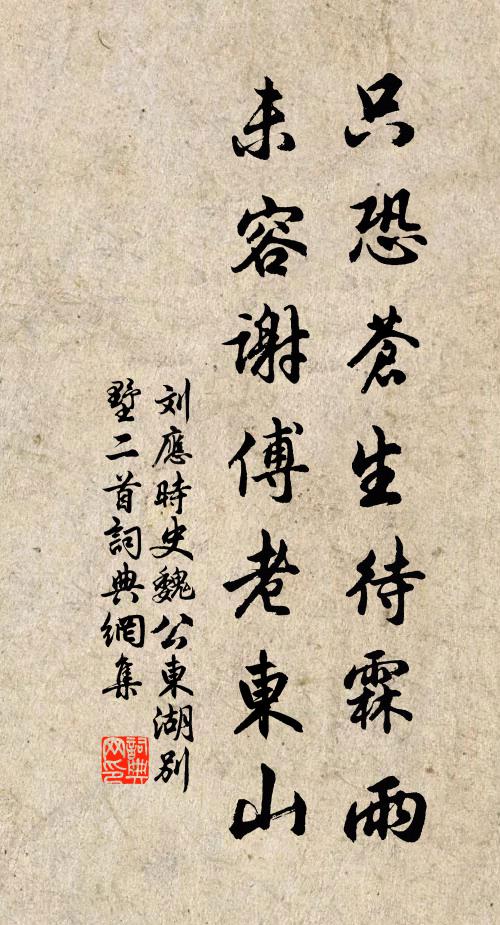 只恐蒼生待霖雨
未容謝傅老東山
刘應時史魏公東湖别
墅二首詞典網集
詞典
网印